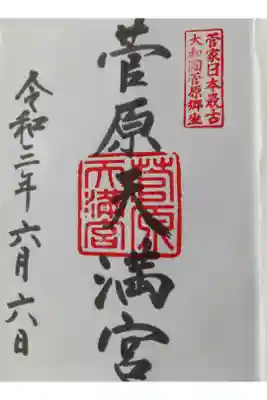 管家日本最古
大和國菅原郷坐
菅原天満宮
菅原
天満宮
令和三年六月六日